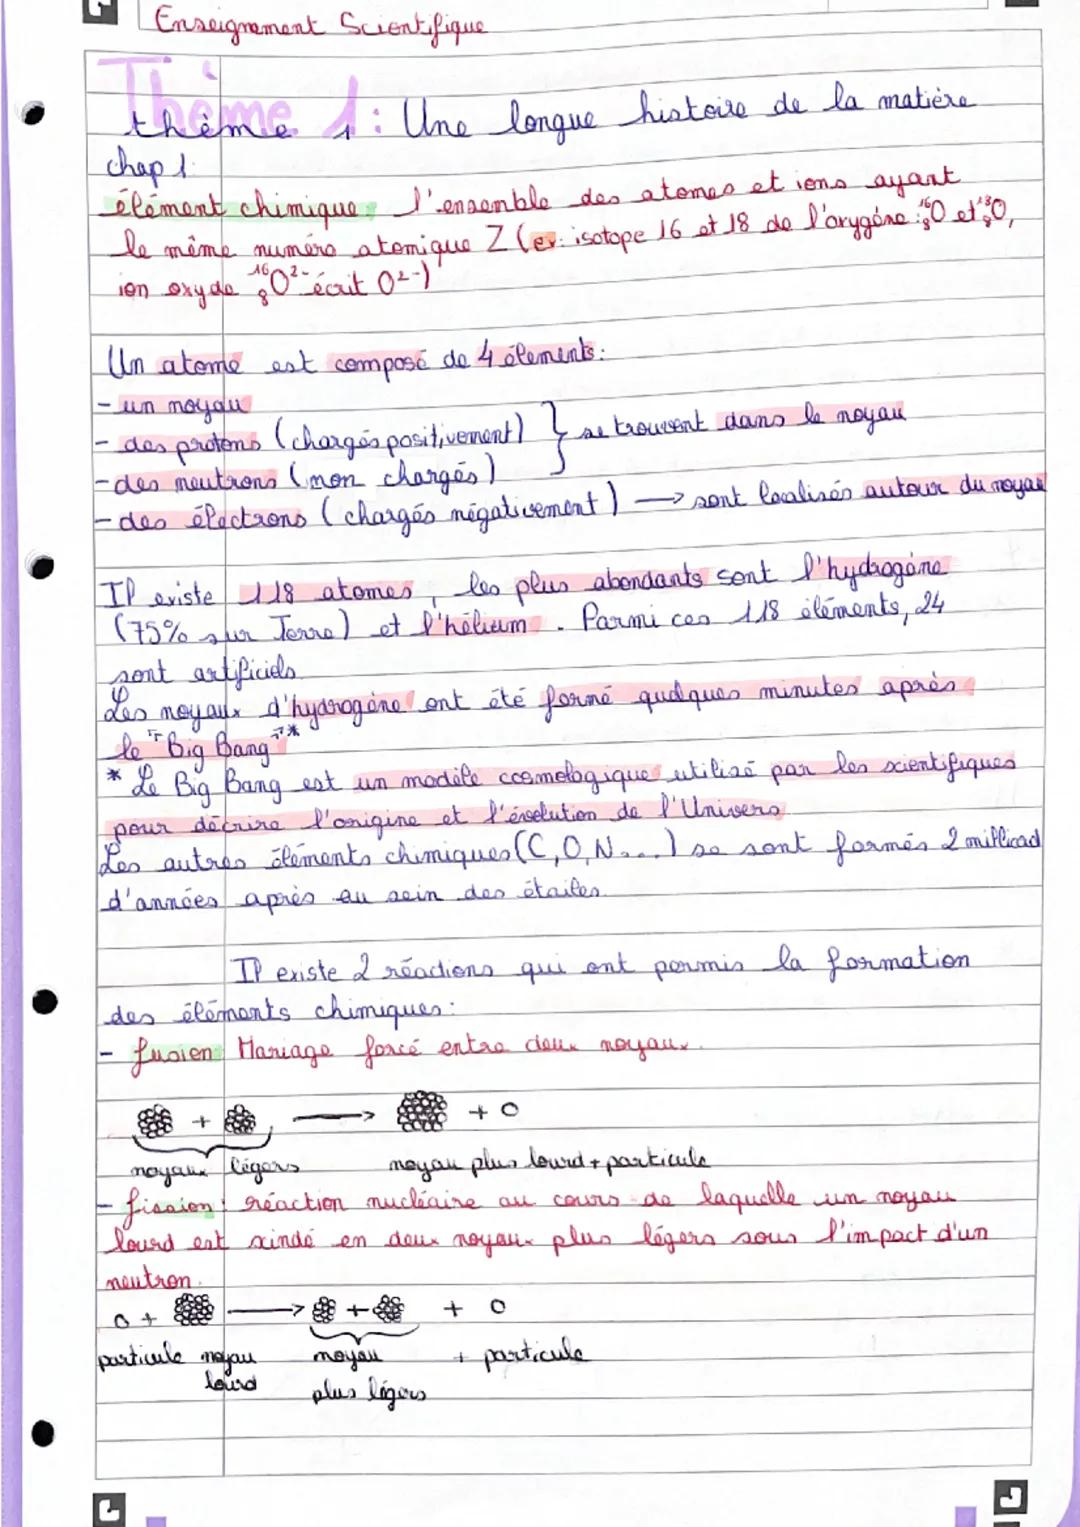 Enseignement Scientifique
Thème 1
thème 1 : Une longue histoire de la matière
chap 1.
élément chimique : l'ensemble des atomes et ions ayant
le même numéro atomique Z (ex: isotope 16 et 18 de l'oxygène : ¹⁶₈O et ¹⁸₈O,
ion oxyde ¹⁶₈O²⁻ écrit O²⁻)
Un atome est composé de 4 élements :
- un noyau
- des protons (chargés positivement) } se trouvent dans le noyau
- des neutrons (non chargés)
- des électrons (chargés négativement) → sont localisés autour du noyau
Il existe 118 atomes, les plus abondants sont l'hydrogène
(75% sur Terre) et l'hélium. Parmi ces 118 éléments, 24
sont artificiels.
Les noyaux d'hydrogène ont été formé quelques minutes après
le "Big Bang"*
* Le Big Bang est un modèle cosmologique utilisé par les scientifiques
pour décrire l'origine et l'évolution de l'Univers
Les autres éléments chimiques (C, O, N...) se sont formés 2 milliard
d'années après au sein des étoiles.
Il existe 2 réactions qui ont permis la formation
des éléments chimiques :
- fusion : Mariage forcé entre deux noyaux.
+ → + O
noyaux légers noyau plus lourd + particule
- fission : réaction nucléaire au cours de laquelle un noyau
lourd est scindé en deux noyaux plus légers sous l'impact d'un
neutron.
O + → + + O
particule noyau noyau + particule
lourd plus légers